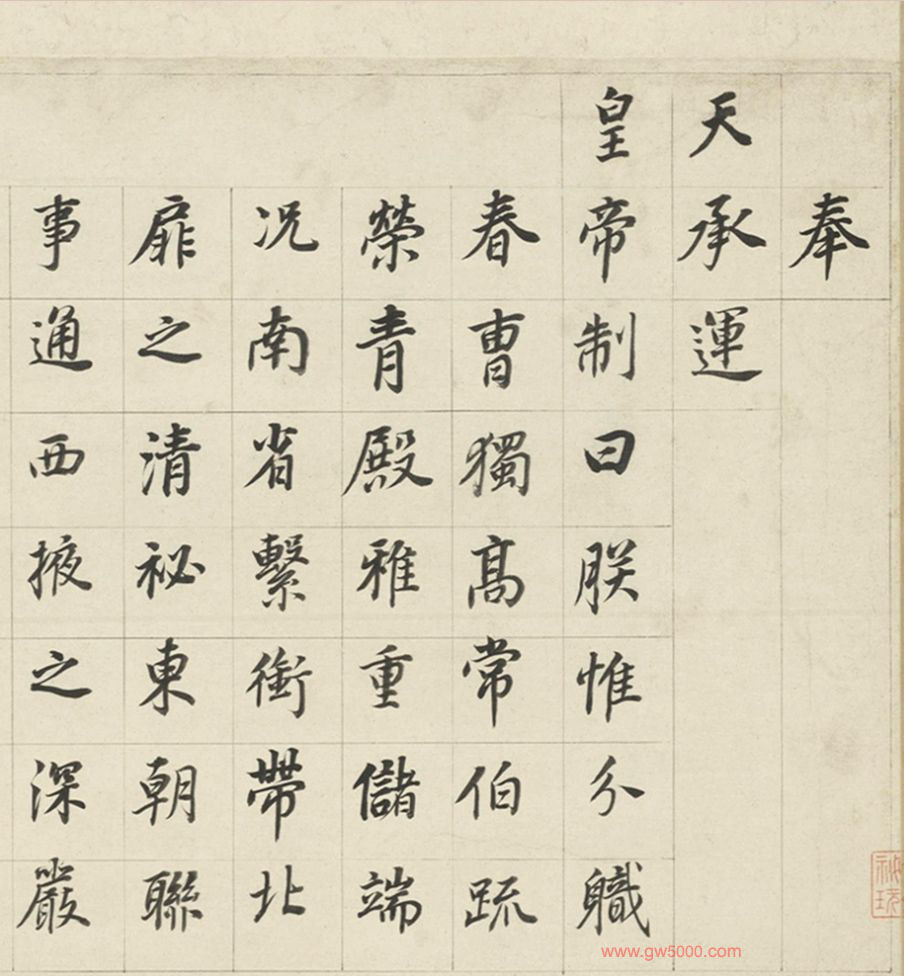 奉
天承運
皇帝制曰朕惟分職
春曹獨髙常伯䟽
榮青殿雅重儲端
况南省繫銜帶北
扉之清祕東朝聯
事通西掖之深嚴
www.gw5000.com